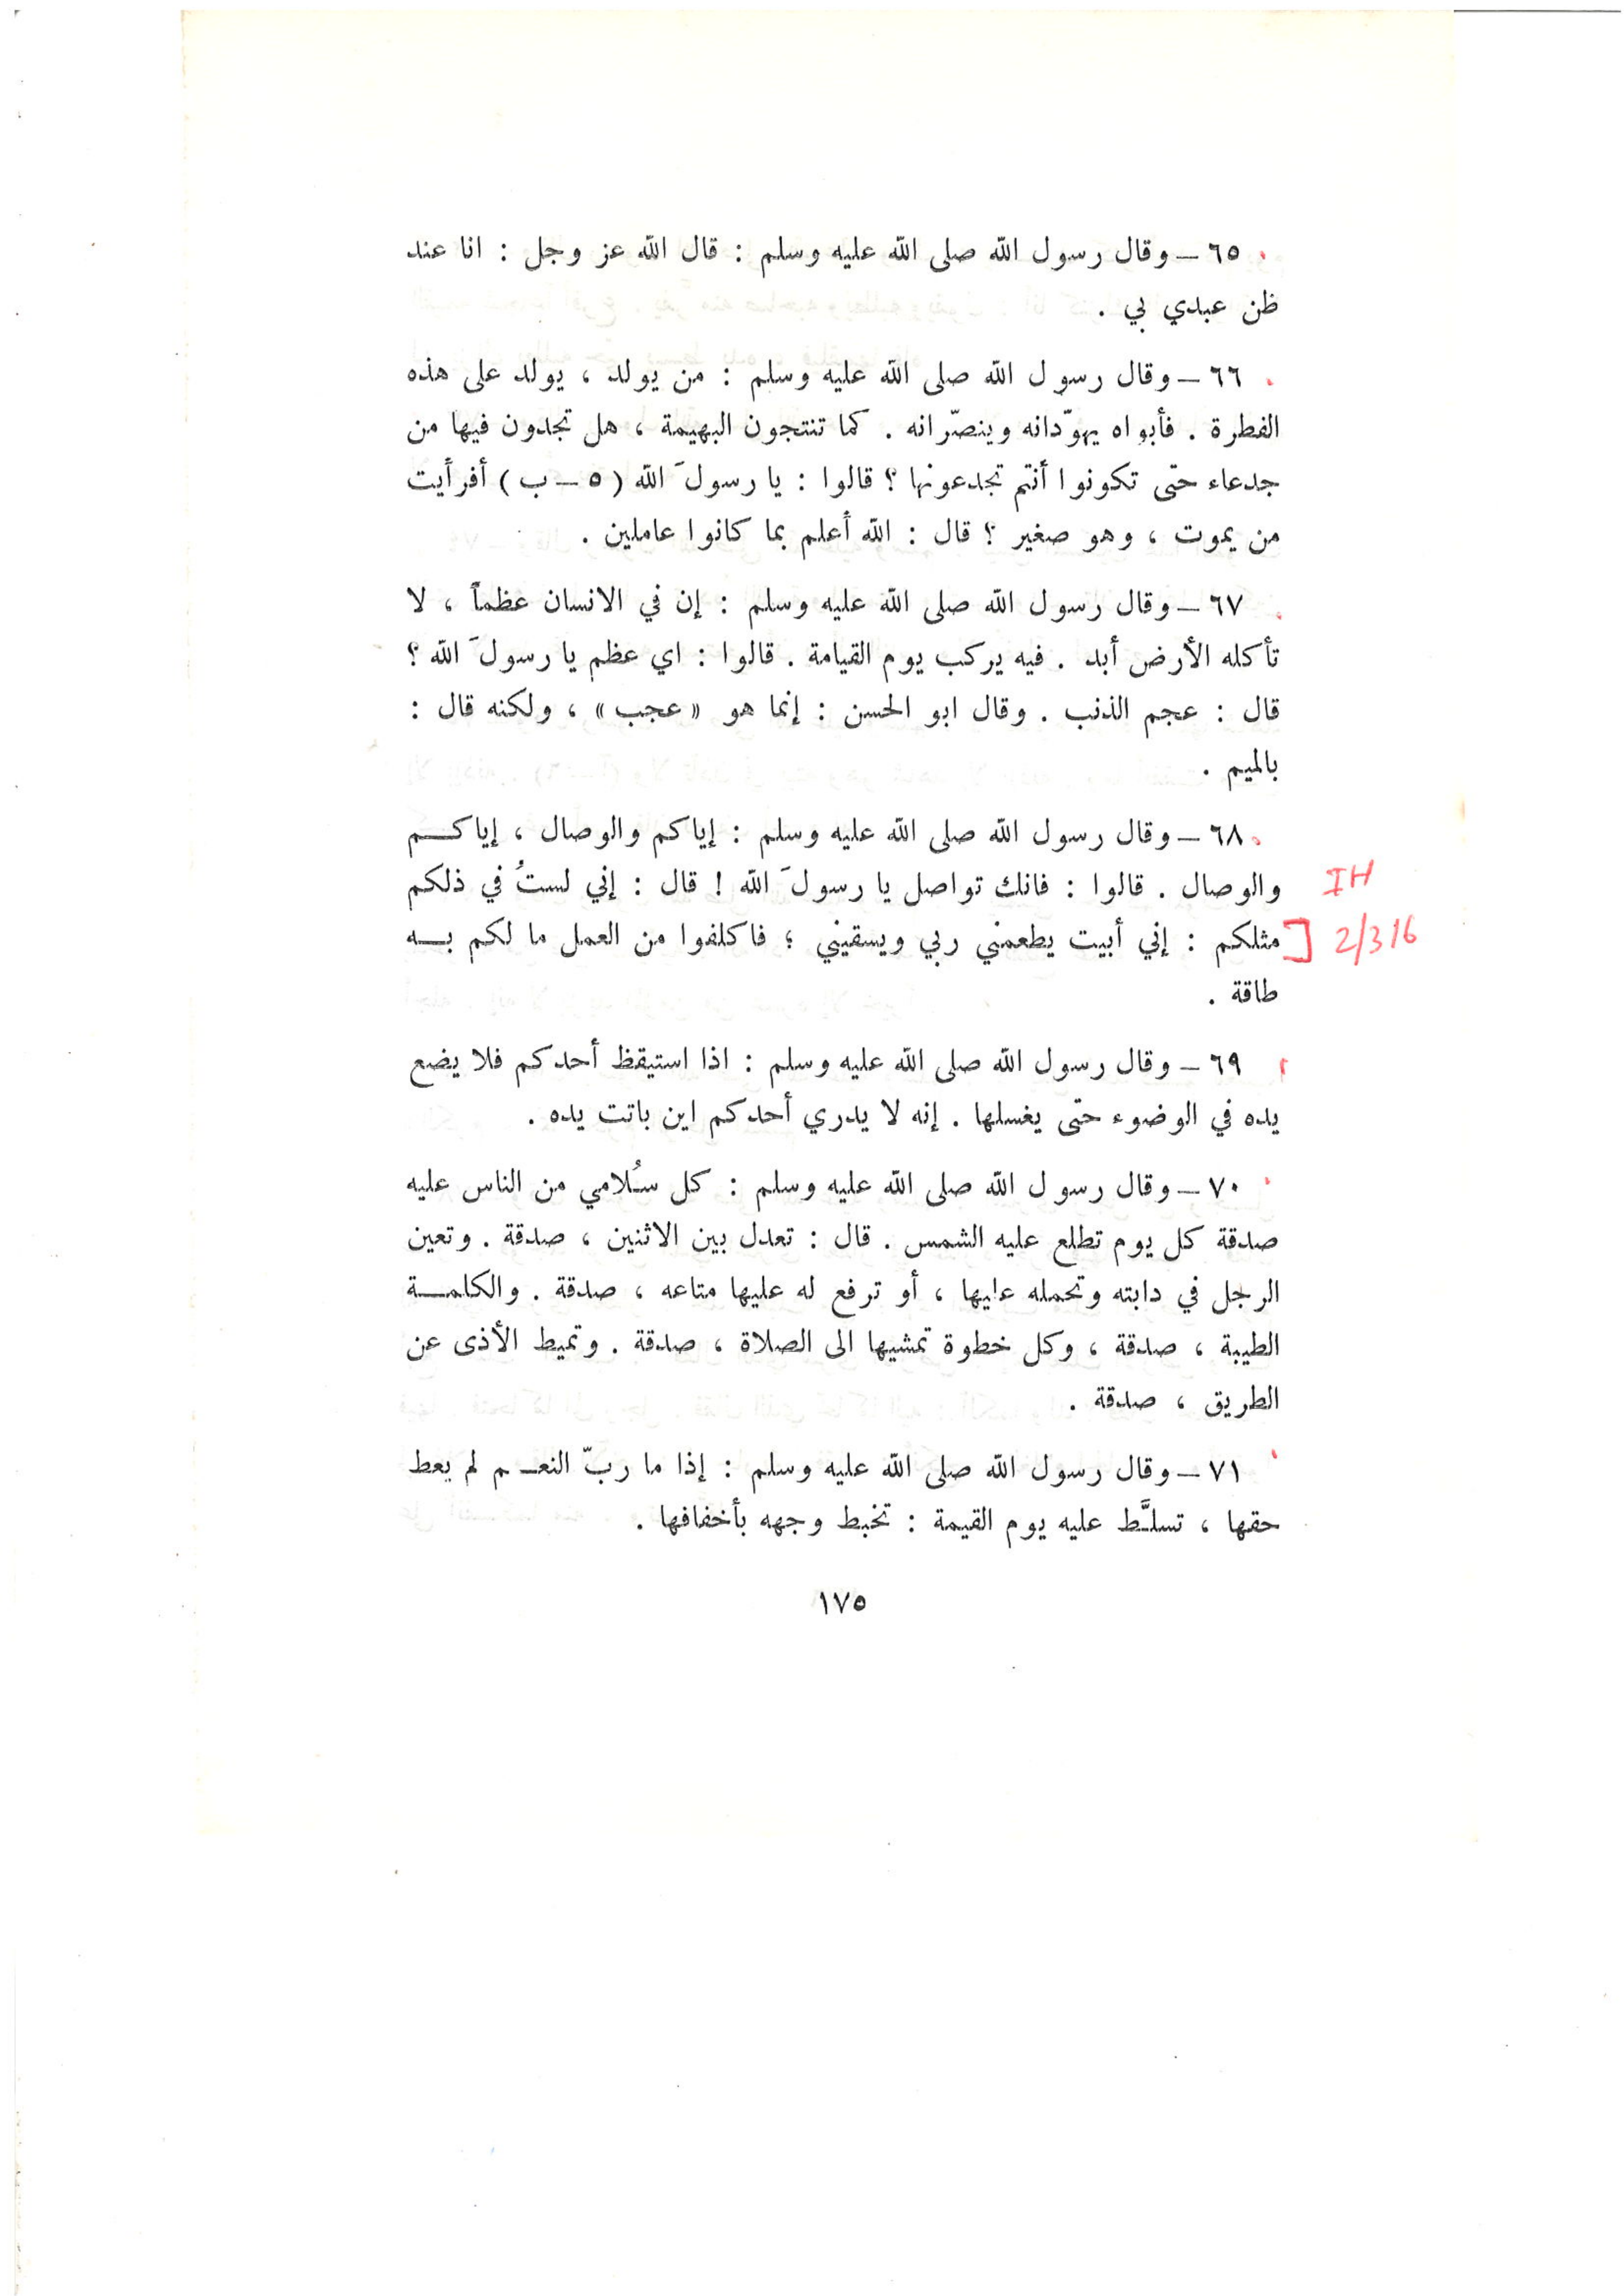 ٦٥ – وقال رسول الله صلى الله عليه وسلم : قال الله عز وجل : انا عند
ظن عبدي بي .
٦٦ – وقال رسول الله صلى الله عليه وسلم : من يولد ، يولد على هذه
الفطرة . فأبواه يهوّدانه وينصّرانه . كما تنتجون البهيمة ، هل تجدون فيها من
جدعاء حتى تكونوا أنتم تجدعونها ؟ قالوا : يا رسولَ الله ( ٥ – ب ) أفرأيت
من يموت ، وهو صغير ؟ قال : الله أعلم بما كانوا عاملين .
٦٧ – وقال رسول الله صلى الله عليه وسلم : إن في الانسان عظماً ، لا
تأكله الأرض أبد . فيه يركب يوم القيامة . قالوا : اي عظم يا رسولَ الله ؟
قال : عجم الذنب . وقال ابو الحسن : إنما هو « عجب » ، ولكنه قال :
بالميم .
٦٨ – وقال رسول الله صلى الله عليه وسلم : إياكم والوصال ، إياكم
والوصال . قالوا : فانك تواصل يا رسولَ الله ! قال : إني لستُ في ذلكم
IH
مثلكم : إني أبيت يطعمني ربي ويسقيني ؛ فاكلفوا من العمل ما لكم به
] 2/316
طاقة .
٦٩ – وقال رسول الله صلى الله عليه وسلم : اذا استيقظ أحدكم فلا يضع
يده في الوضوء حتى يغسلها . إنه لا يدري أحدكم اين باتت يده .
٧٠ – وقال رسول الله صلى الله عليه وسلم : كل سُلامي من الناس عليه
صدقة كل يوم تطلع عليه الشمس . قال : تعدل بين الاثنين ، صدقة . وتعين
الرجل في دابته وتحمله عليها ، أو ترفع له عليها متاعه ، صدقة . والكلمة
الطيبة ، صدقة ، وكل خطوة تمشيها الى الصلاة ، صدقة . وتميط الأذى عن
الطريق ، صدقة .
٧١ – وقال رسول الله صلى الله عليه وسلم : إذا ما ربّ النعم لم يعط
حقها ، تسلَّط عليه يوم القيمة : تخبط وجهه بأخفافها .
١٧٥